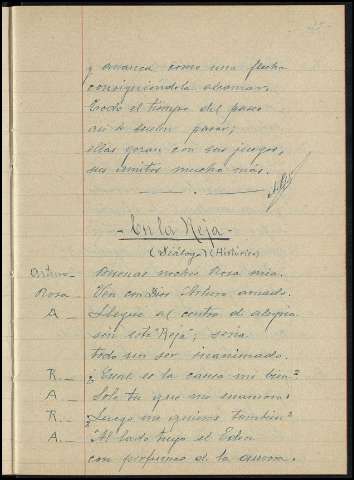 y avanza como una flecha
consiguiéndola atomar,
Todo el tiempo del paseo
así lo suelen pasar;
ellas gozan con sus juegos,
sus amitos mucho más.
- En la Reja -
(Diálogo) (Histórico)
Arturo - Buenas noches Rosa mia.
Rosa - Ven con Dios Arturo amado.
A - Llegué al centro de alegria
sin esta "Reja", seria
todo un ser inanimado.
R. - ¿Cual es la causa mi bien?
A - Solo tu que me enamora
R. - ¿Luego me quieres tambien?
A. - Al lado tuyo el Eden
con perfumes de la aurora.